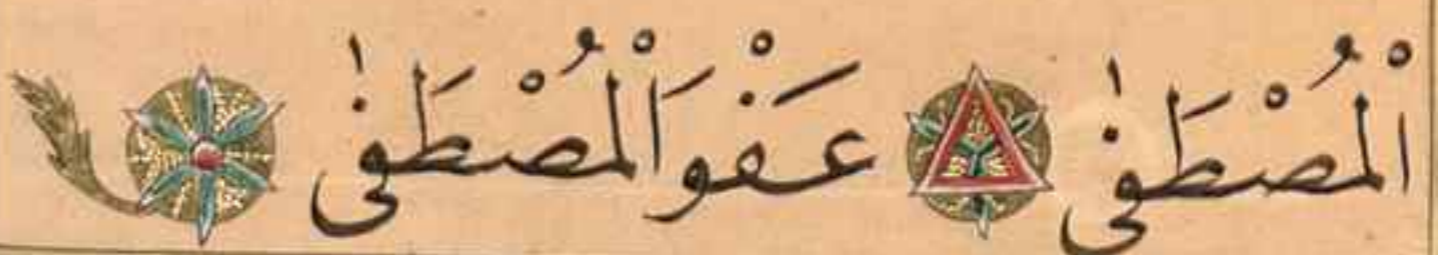 الْمُصْطَفٰى عَفْوَالْمُصْطَفٰى